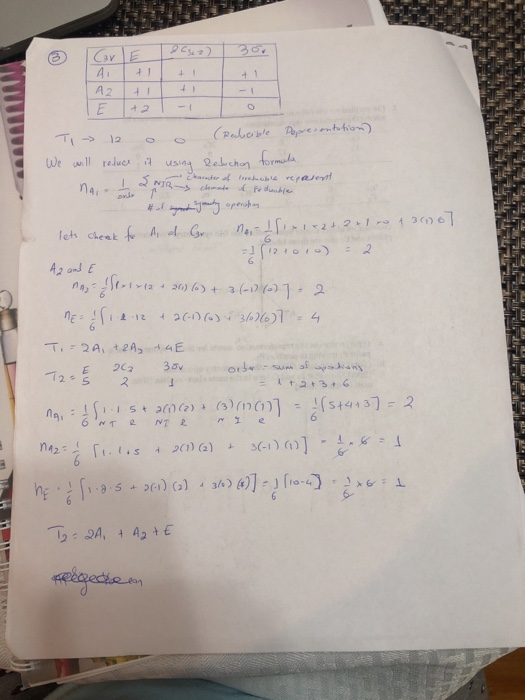 ③
C3v E 2C3(z) 3σv
A1 +1 +1 +1
A2 +1 +1 -1
E +2 -1 0
T1 → 12 0 0 (Reducible Representation)
We will reduce it using Reduction formula
nA1 = 1/order Σ NIR → character of irreducible represent
→ character of Reducible
# of symmetry operation
lets check for A1 of C3v nA1 = 1/6 [1×1×12 + 2×1×0 + 3(1)0]
= 1/6 [12+0+0] = 2
A2 and E
nA2 = 1/6 [1×1×12 + 2(1)(0) + 3(-1)(0)] = 2
nE = 1/6 [1·2·12 + 2(-1)(0) + 3(0)(0)] = 4
T1 = 2A1 + 2A2 + 4E
T2 = E 2C3 3σv order = sum of operations
5 2 1 = 1+2+3=6
nA1 = 1/6 [1·1·5 + 2(1)(2) + (3)(1)(1)] = 1/6 [5+4+3] = 2
N I R N I R N I R
nA2 = 1/6 [1·1·5 + 2(1)(2) + 3(-1)(1)] = 1/6 × 6 = 1
nE = 1/6 [1·2·5 + 2(-1)(2) + 3(0)(1)] = 1/6 [10-4] = 1/6 × 6 = 1
T2 = 2A1 + A2 + E